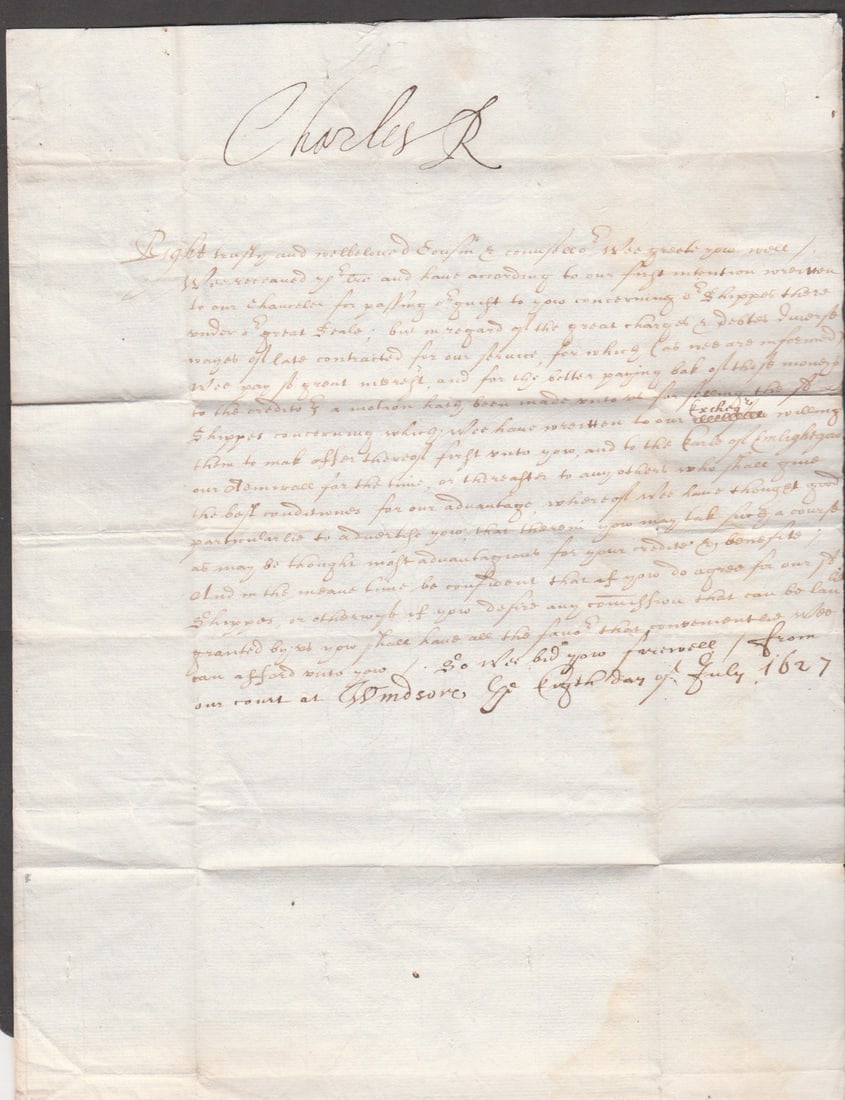 Charles R
Right trusty and welbeloved Cousin & counsello^r Wee greete yow well /.
Wee receaved yo^r l̃re and have according to our first intention wreitten
to our Chanceler for passing o^r guift to yow concerning o^r Shippes there
under o^r great Seale, but in regard of the great charges & debtes diverse
wayes of late contracted for our service, for which (as wee are informed)
Wee pay so great interest, and for the better paying bak of those moneyes
to the credito^rs a motion haith been made unto us for selling the s^d
Shippes concerning which Wee have wreitten to our Excheq^r willing
them to mak offer thereof first unto yow, and to the Earle of Linlithgow
our Admirall for the time, or thereafter to any others who shall give
the best conditiounes for our advantage, whereof Wee have thought good
particularlie to advertise yow, that therein yow may tak such a course
as may be thought most advantagious for your credite & benefite /
And in the meane time be confident that if yow do agree for our s^d
Shippes, or otherwyse if yow desire any com̃ission that can be
granted by us yow shall have all the favo^r that convenientlie Wee
can afford unto yow /. So Wee bid yow farewell / From
our court at Windsore ye Eight day of July 1627